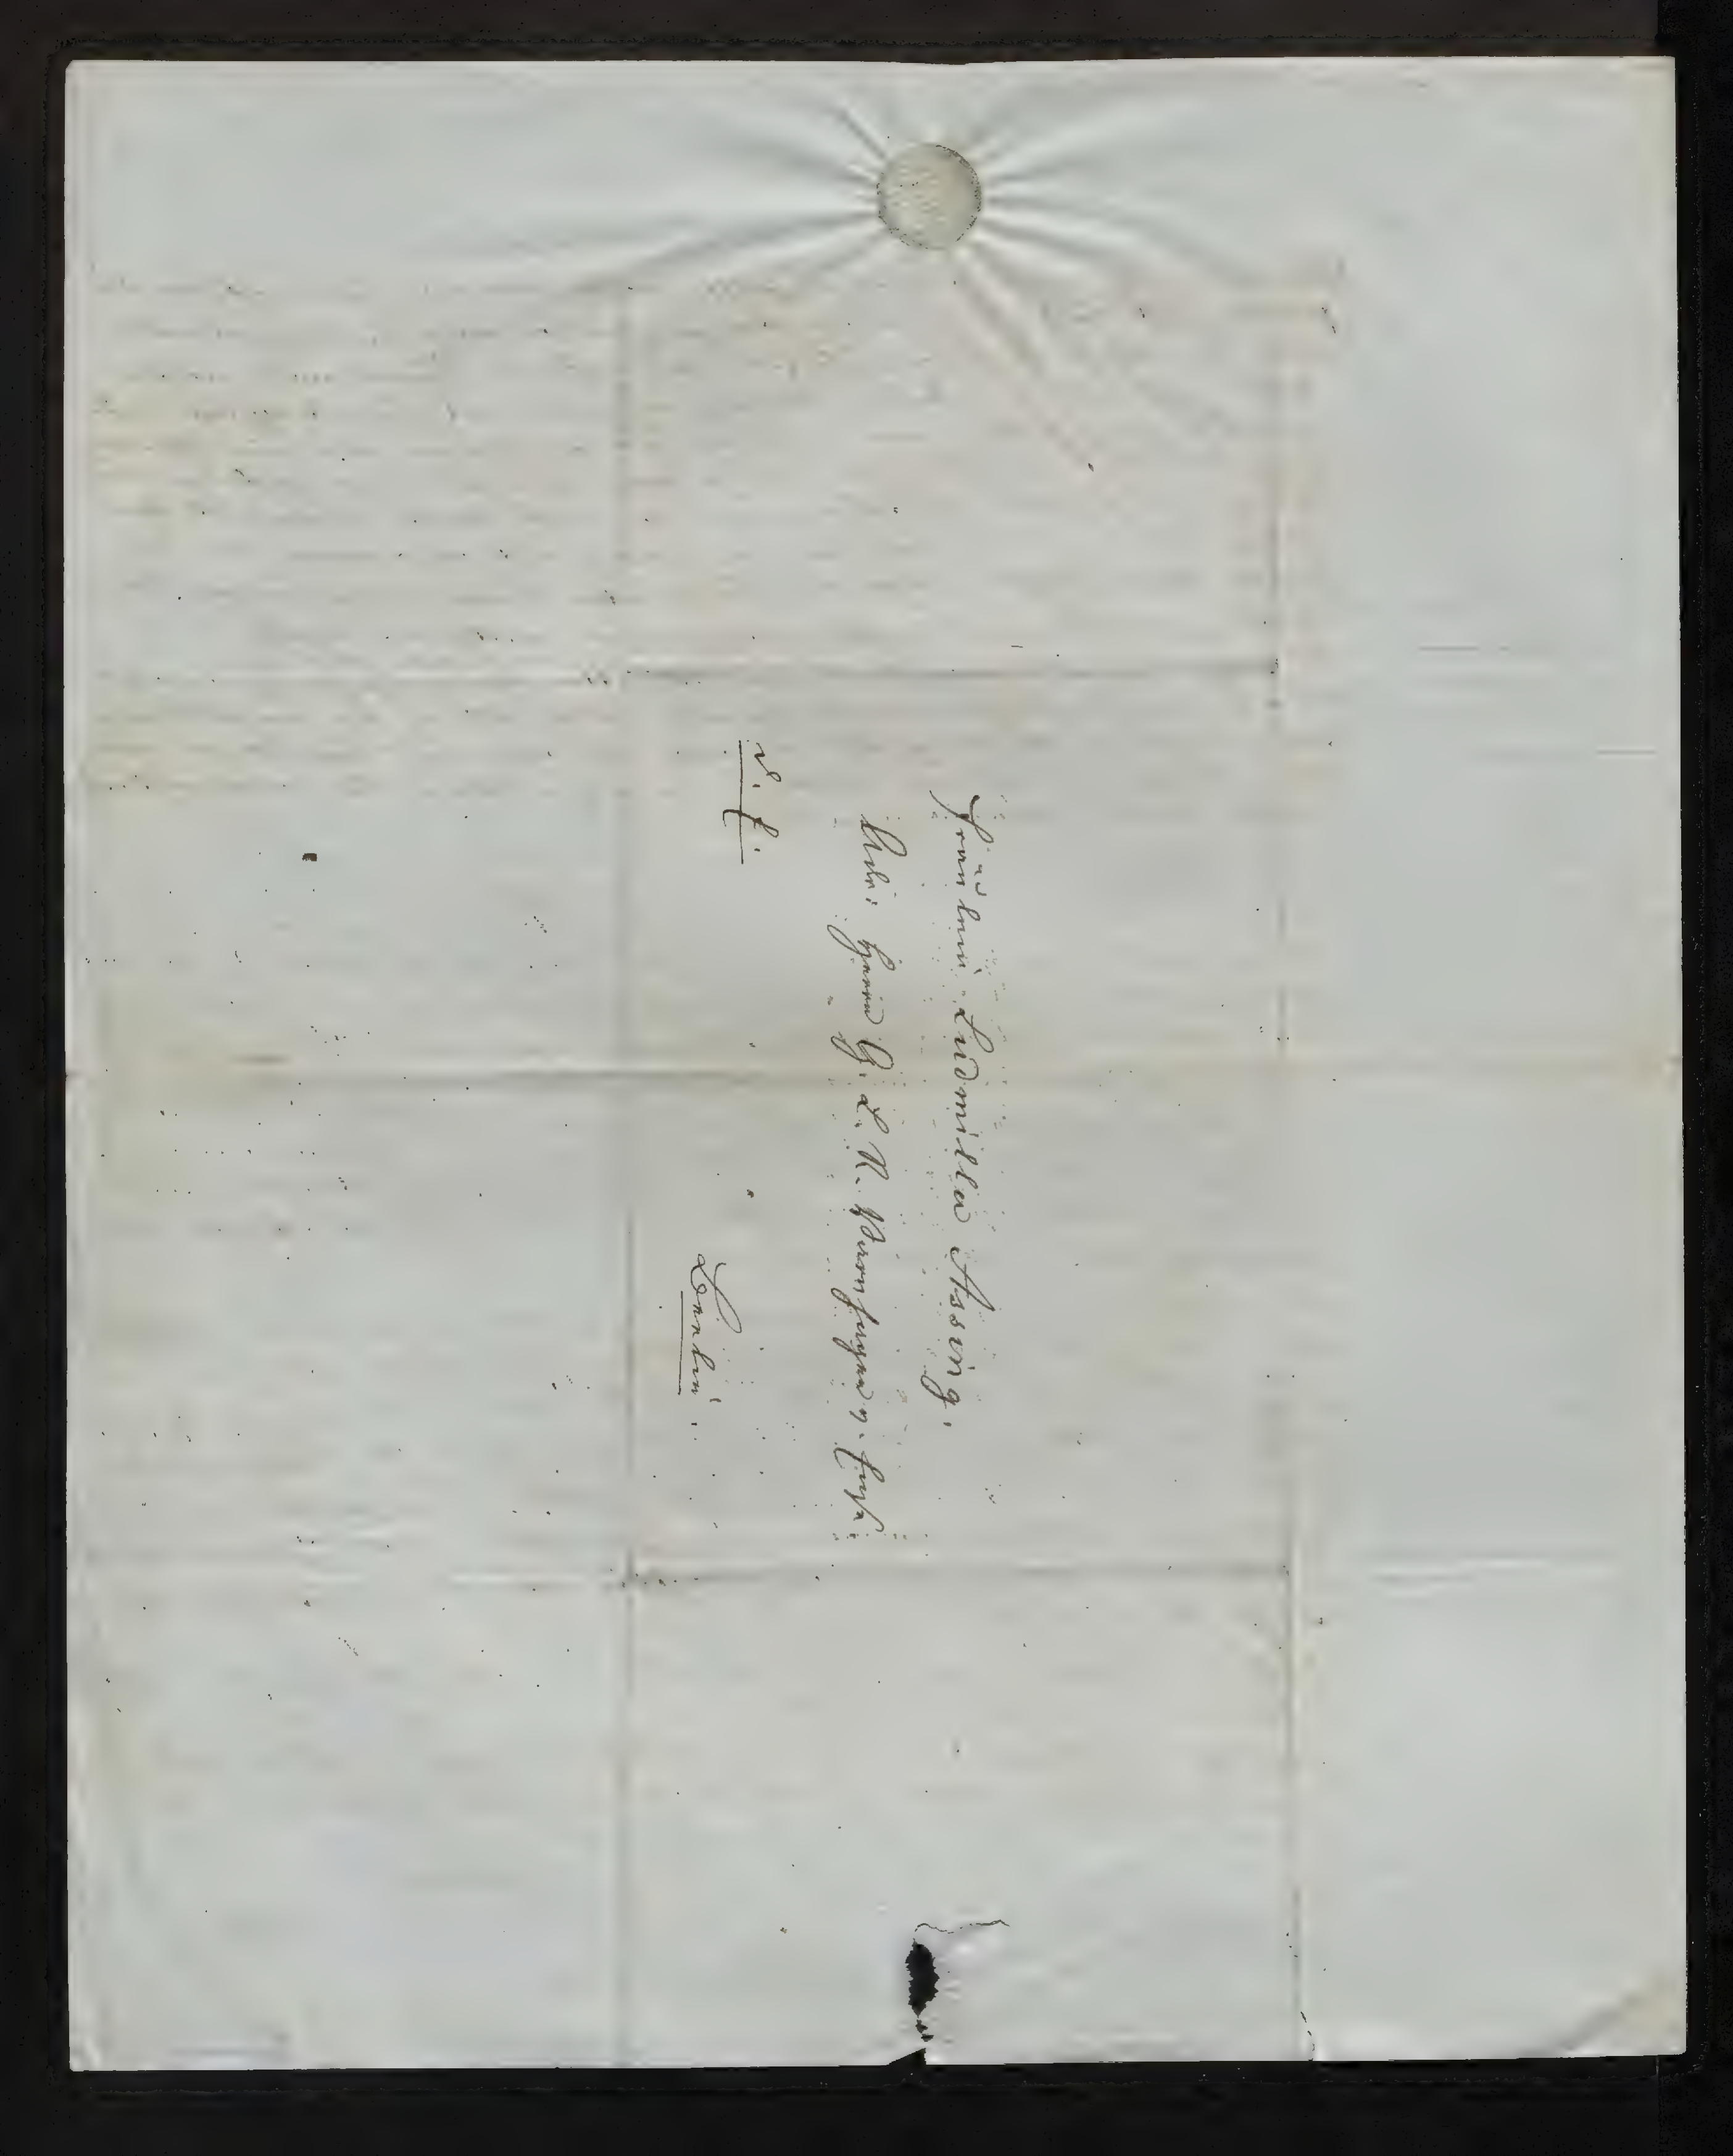 Fräulein Ludmilla Assing.
Adr: Herrn G. L. R. Varnhagen v. Ense.
d. E.
Berlin.